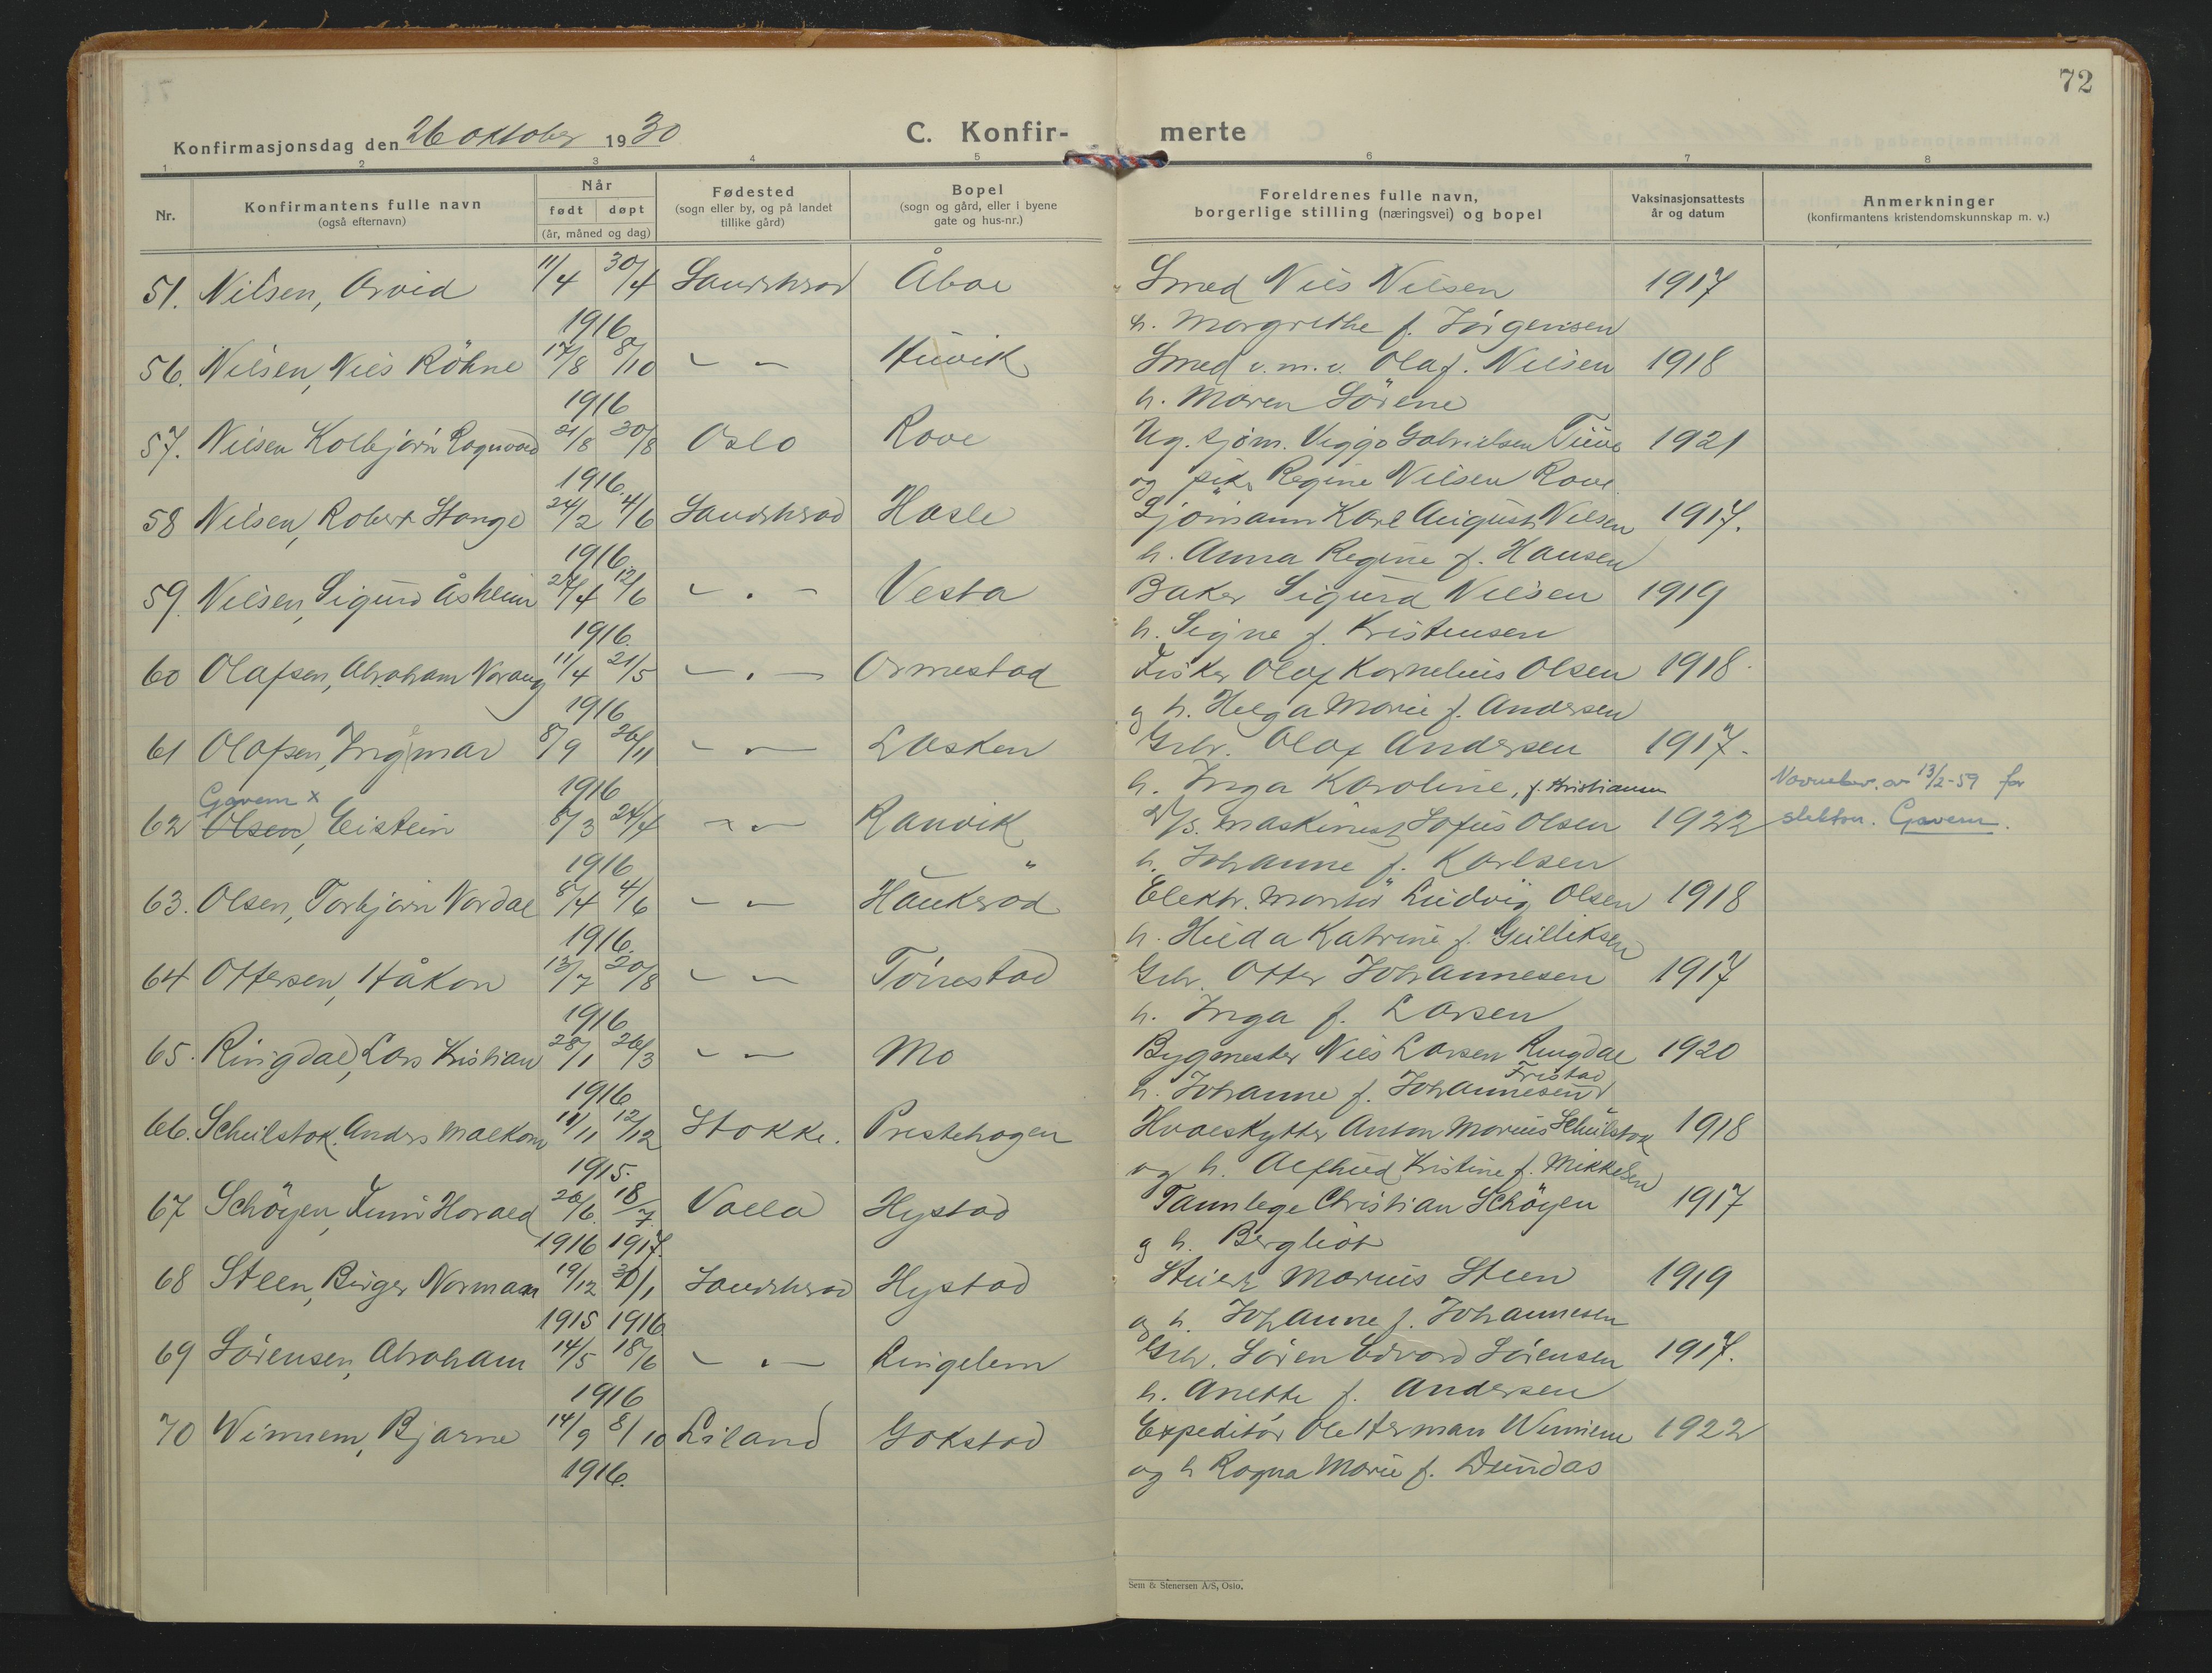 72
Konfirmasjonsdag den 26 oktober 1930
C. Konfir- merte
1 2 3 4 5 6 7 8
Nr.
Konfirmantens fulle navn
(også efternavn)
Når
født døpt
(år, måned og dag)
Fødested
(sogn eller by, og på landet
tillike gård)
Bopel
(sogn og gård, eller i byene
gate og hus-nr.)
Foreldrenes fulle navn,
borgerlige stilling (næringsvei) og bopel
Vaksinasjonsattests
år og datum
Anmerkninger
(konfirmantens kristendomskunnskap m. v.)
51. Nilsen, Arvid 11/4 30/4 Sandeherad Åboe Smed Nils Nilsen 1917
1916 h. Margrethe f. Jörgensen
56. Nilsen, Nils Röhne 17/8 8/10 — — Huvik Smed v.m.v. Olaf Nilsen 1918
1916 h. Maren Sörene
57. Nilsen Kolbjörn Ragnvald 21/8 30/8 Oslo Rove Ug. sjöm. Viggo Gabrielsen 1921
1916. og pike Regine Nilsen Rove
58 Nilsen, Robert Stange 24/2 4/6 Sandeherad Hasle Sjömann Karl August Nilsen 1917.
1916. h. Anna Regine f. Hansen
59. Nilsen, Sigurd Åsheim 27/4 12/6 — . — Vesta Baker Sigurd Nilsen 1919
1916. h. Signe f. Kristensen
60 Olafsen, Abraham Vrang 11/4 21/5 — . — Ormestad Fisker Olaf Kornelius Olsen 1918
1916 og h. Helga Marie f. Andersen
61 Olafsen, Ingmar 8/9 26/11 — — Lasken Grbr. Olaf Andersen 1917.
1916 h. Inga Karoline, f. Kristiansen
Gavem x Navnebev. av 13/2-59 for
62 Olsen, Eistein 8/3 24/4 — — Ranvik D/S. maskinist Sofus Olsen 1922 slektsn. Gavem.
1916 h. Johanne f. Karlsen
63. Olsen, Torbjörn Nordal 8/4 4/6 — — Haukeröd Elektr. montör Ludvig Olsen 1918
1916. h. Hilda Katrine f. Gulliksen
64 Ottersen, Håkon 13/7 20/8 — — Tönestad Grbr. Otter Johannesen 1917
1916 h. Inga f. Larsen
65. Ringdal, Lars Kristian 28/1 26/3 — — Mo Bygmester Nils Larsen Ringdal 1920
Fristad
1916 h. Johanne f. Johannesen
66. Schulstok. Anders Malkom 11/11 12/12 Stokke. Prestehagen Hvalskytter Anton Marius Schulstok 1918
1915. og h. Alfhild Kristine f. Mikkelsen
67 Schöyen, Finn Harald 26/6. 18/7. Valla Hystad Tannlege Christian Schöyen 1917
1916 1917. og h. Bergliot
68 Steen, Birger Normann 19/12 30/1 Sandeherad Hystad Stuert Marius Steen 1919
1915 1916 og h. Johanne f. Johannesen
69 Sörensen, Abraham 14/5 18/6 — . — Lingelem Grbr. Sören Edvard Sörensen 1917.
1916 h. Anette f. Andersen
70 Winnem, Bjarne 14/9 8/10 Liland Gokstad Expeditör Ole Herman Winnem 1922
1916. og h Ragna Marie f. Dundas
Sem & Stenersen A/S, Oslo.